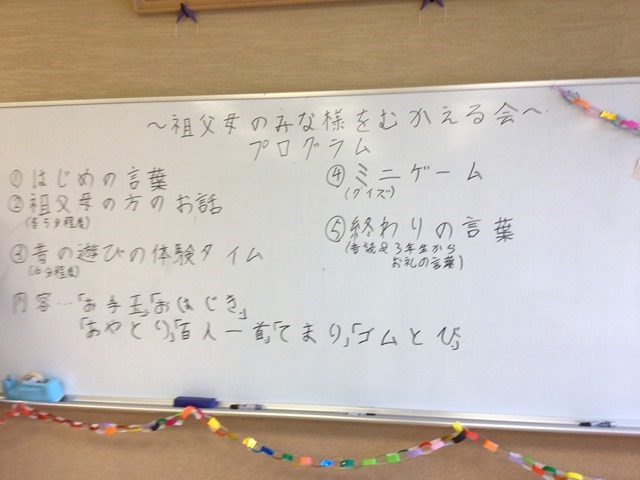 ～祖父母のみな様をむかえる会～
プログラム
①はじめの言葉
②祖父母の方のお話
(各5分程度)
③昔の遊びの体験タイム
内容…「お手玉」「おはじき」
「あやとり」「百人一首」「てまり」「ゴムとび」
④ミニゲーム
(クイズ)
⑤終わりの言葉
3年生から
お礼の言葉)